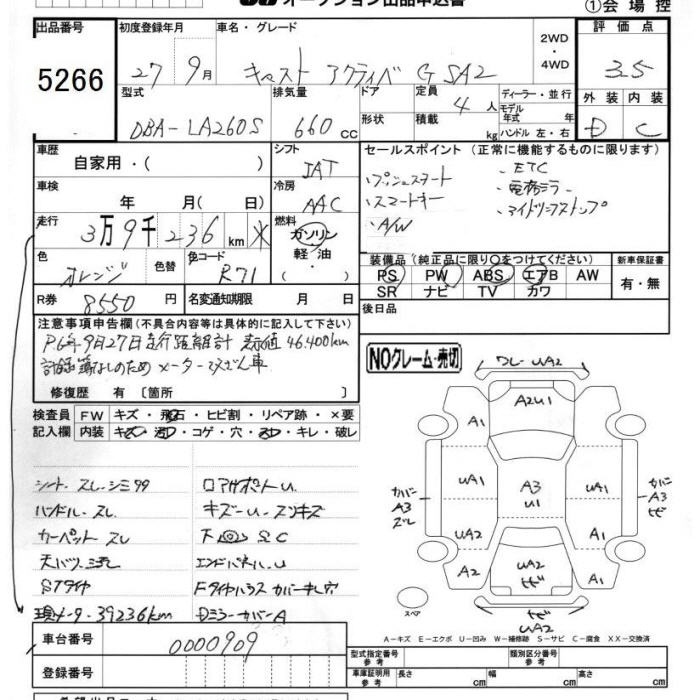 オークション出品申込書
①会場控
出品番号 初度登録年月 車名・グレード 2WD・4WD 評価点
5266 27年9月 キャスト アクティバ G SA2 3.5
型式 排気量 ドア 定員 4人 ディーラー・並行 外装 内装
DBA-LA260S 660cc 形状 積載 kg モデル年式 年式 ハンドル 左・右 D C
車歴 シフト セールスポイント (正常に機能するものに限ります)
自家用・( ) IAT
プッシュスタート ・ETC
車検 冷房 スマートキー ・電格ミラー
年 月(日) AAC ・A/W ・アイドリングストップ
走行 3万9千236km 燃料 ガソリン 軽油・( )
装備品 (純正品に限り○をつけてください) 新車保証書
色 オレンジ 色替 色コード R71
PS PW ABS エアB AW 有・無
SR ナビ TV カワ
R券 8550円 名変通知期限 月 日
後日品
注意事項申告欄 (不具合内容等は具体的に記入して下さい)
R6年9月27日走行距離計 表示値46,400km
記録簿なしのため メーター改ざん車
修復歴 有 〔箇所 〕
NOクレーム・売切
検査員 FW キズ・飛石・ヒビ割・リペア跡・×要
記入欄 内装 キズ・汚れ・コゲ・穴・スレ・キレ・破レ
シート スレ・シミ
ロアサポートU
ハンドル スレ
キズ-U・スリキズ
カーペット スレ
下回りSC
エンドパネルU
Sタイヤ
現メーター 39236km
DミラーカバーA
ワレ UA2
A2U1
A1
UA1 A3 U1 UA1
カバー A3 スレ
カバー A3 ヒビ
UA2 A1
A2 UA2 ヒビ A1
ヒビ UA2
スペア
A-キズ E-エクボ U-凹み W-補修跡 S-サビ C-腐食 XX-交換済
車台番号 0000909
型式指定番号 参考 類別区分番号 参考
登録番号
車庫証明用 参考 長さ cm 幅 cm 高さ cm